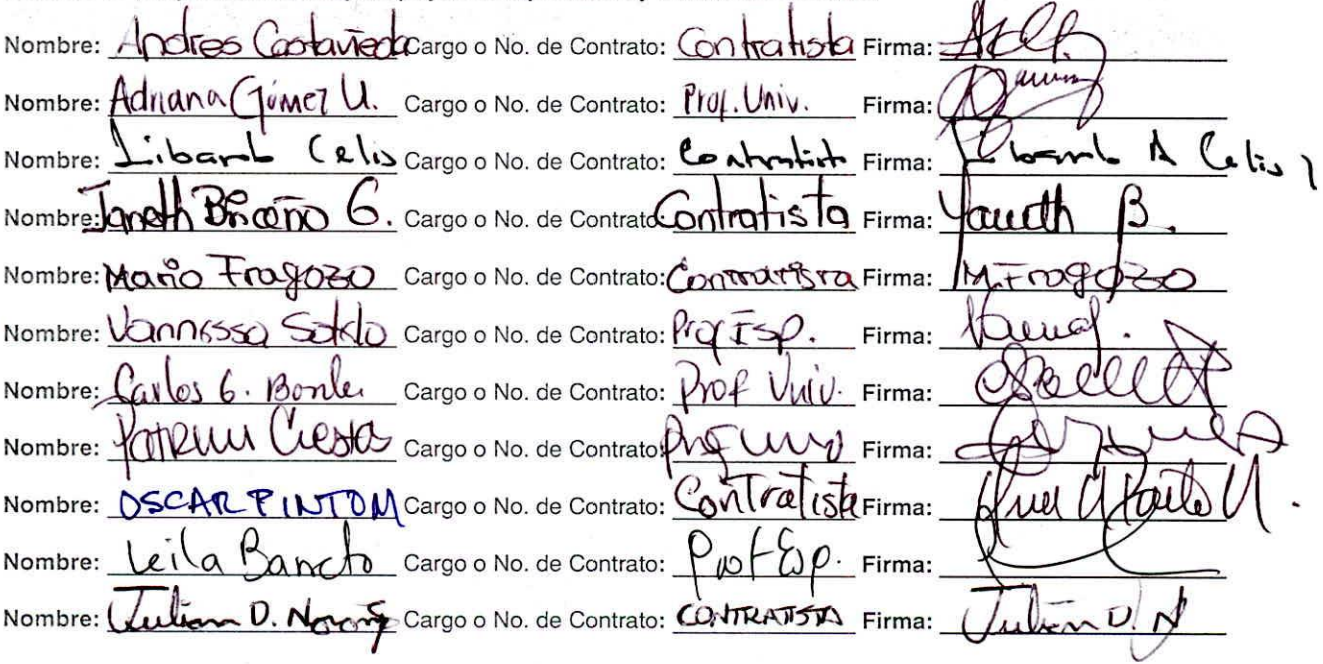 Nombre: Andres Castañeda Cargo o No. de Contrato: Contratista Firma:
Nombre: Adriana Gómez U. Cargo o No. de Contrato: Prof. Univ. Firma:
Nombre: Libardo Celis Cargo o No. de Contrato: Contratista Firma: Libardo A Celis
Nombre: Janeth Briceño G. Cargo o No. de Contrato: Contratista Firma: Yaneth B.
Nombre: Mario Fragozo Cargo o No. de Contrato: Contratista Firma: M. Fragozo
Nombre: Vannessa Sotelo Cargo o No. de Contrato: Prof Esp. Firma:
Nombre: Carlos G. Cargo o No. de Contrato: Prof Univ. Firma:
Nombre: Cuesta Cargo o No. de Contrato: Prof Univ Firma:
Nombre: OSCAR PINTO M Cargo o No. de Contrato: Contratista Firma:
Nombre: Leila Cargo o No. de Contrato: Prof Esp. Firma:
Nombre: Julian D. Cargo o No. de Contrato: CONTRATISTA Firma: Julian D. N